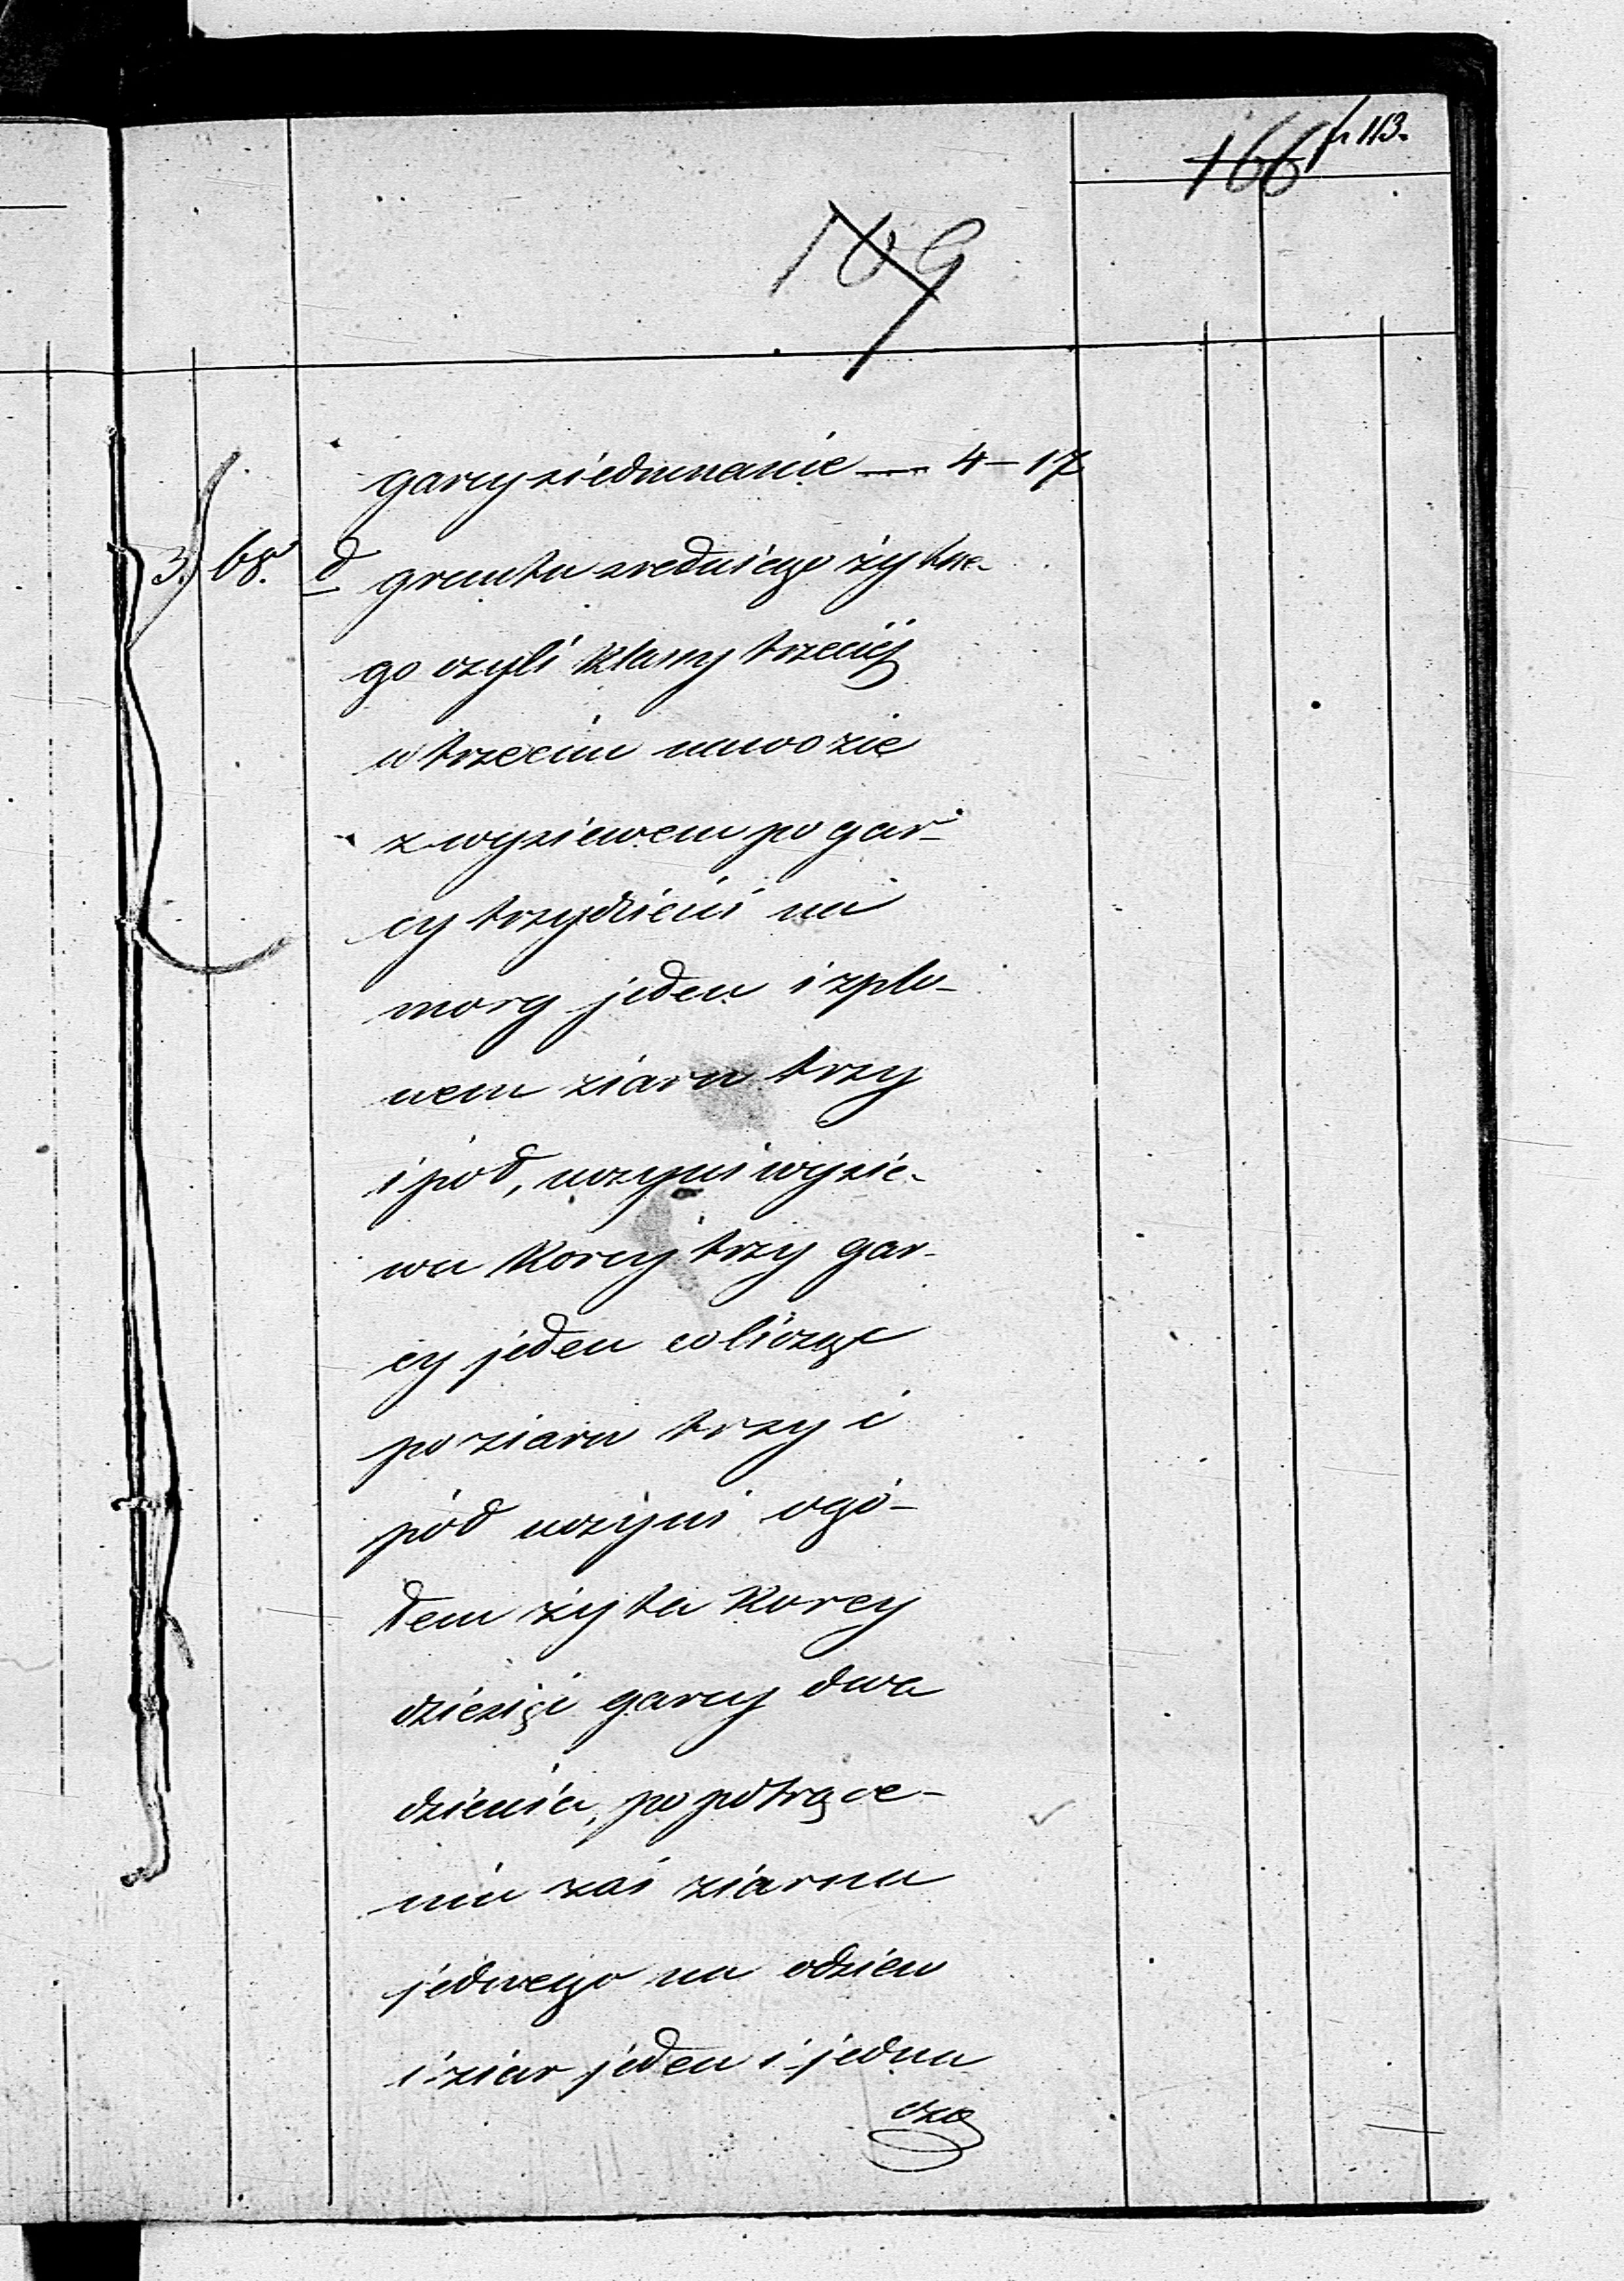 166 f. 113.
169
garcy siedmnaście — 4 – 17
3. 68. d gruntu średniego żytne-
go czyli klassy trzeciéj
w trzecim nawozie
z wysiewem po gar-
cy trzydzieści na
morg jeden i z plo-
nem ziarn trzy
i pół, uczyni wysie-
wu Korcy trzy gar-
cy jeden co licząc
po ziarn trzy i
pół uczyni ogó-
łem żyta Korcy
dziesięć garcy dwa
dzieścia, po potrące-
niu zaś ziarna
jednego na odsiew
i ziar jeden i jedna